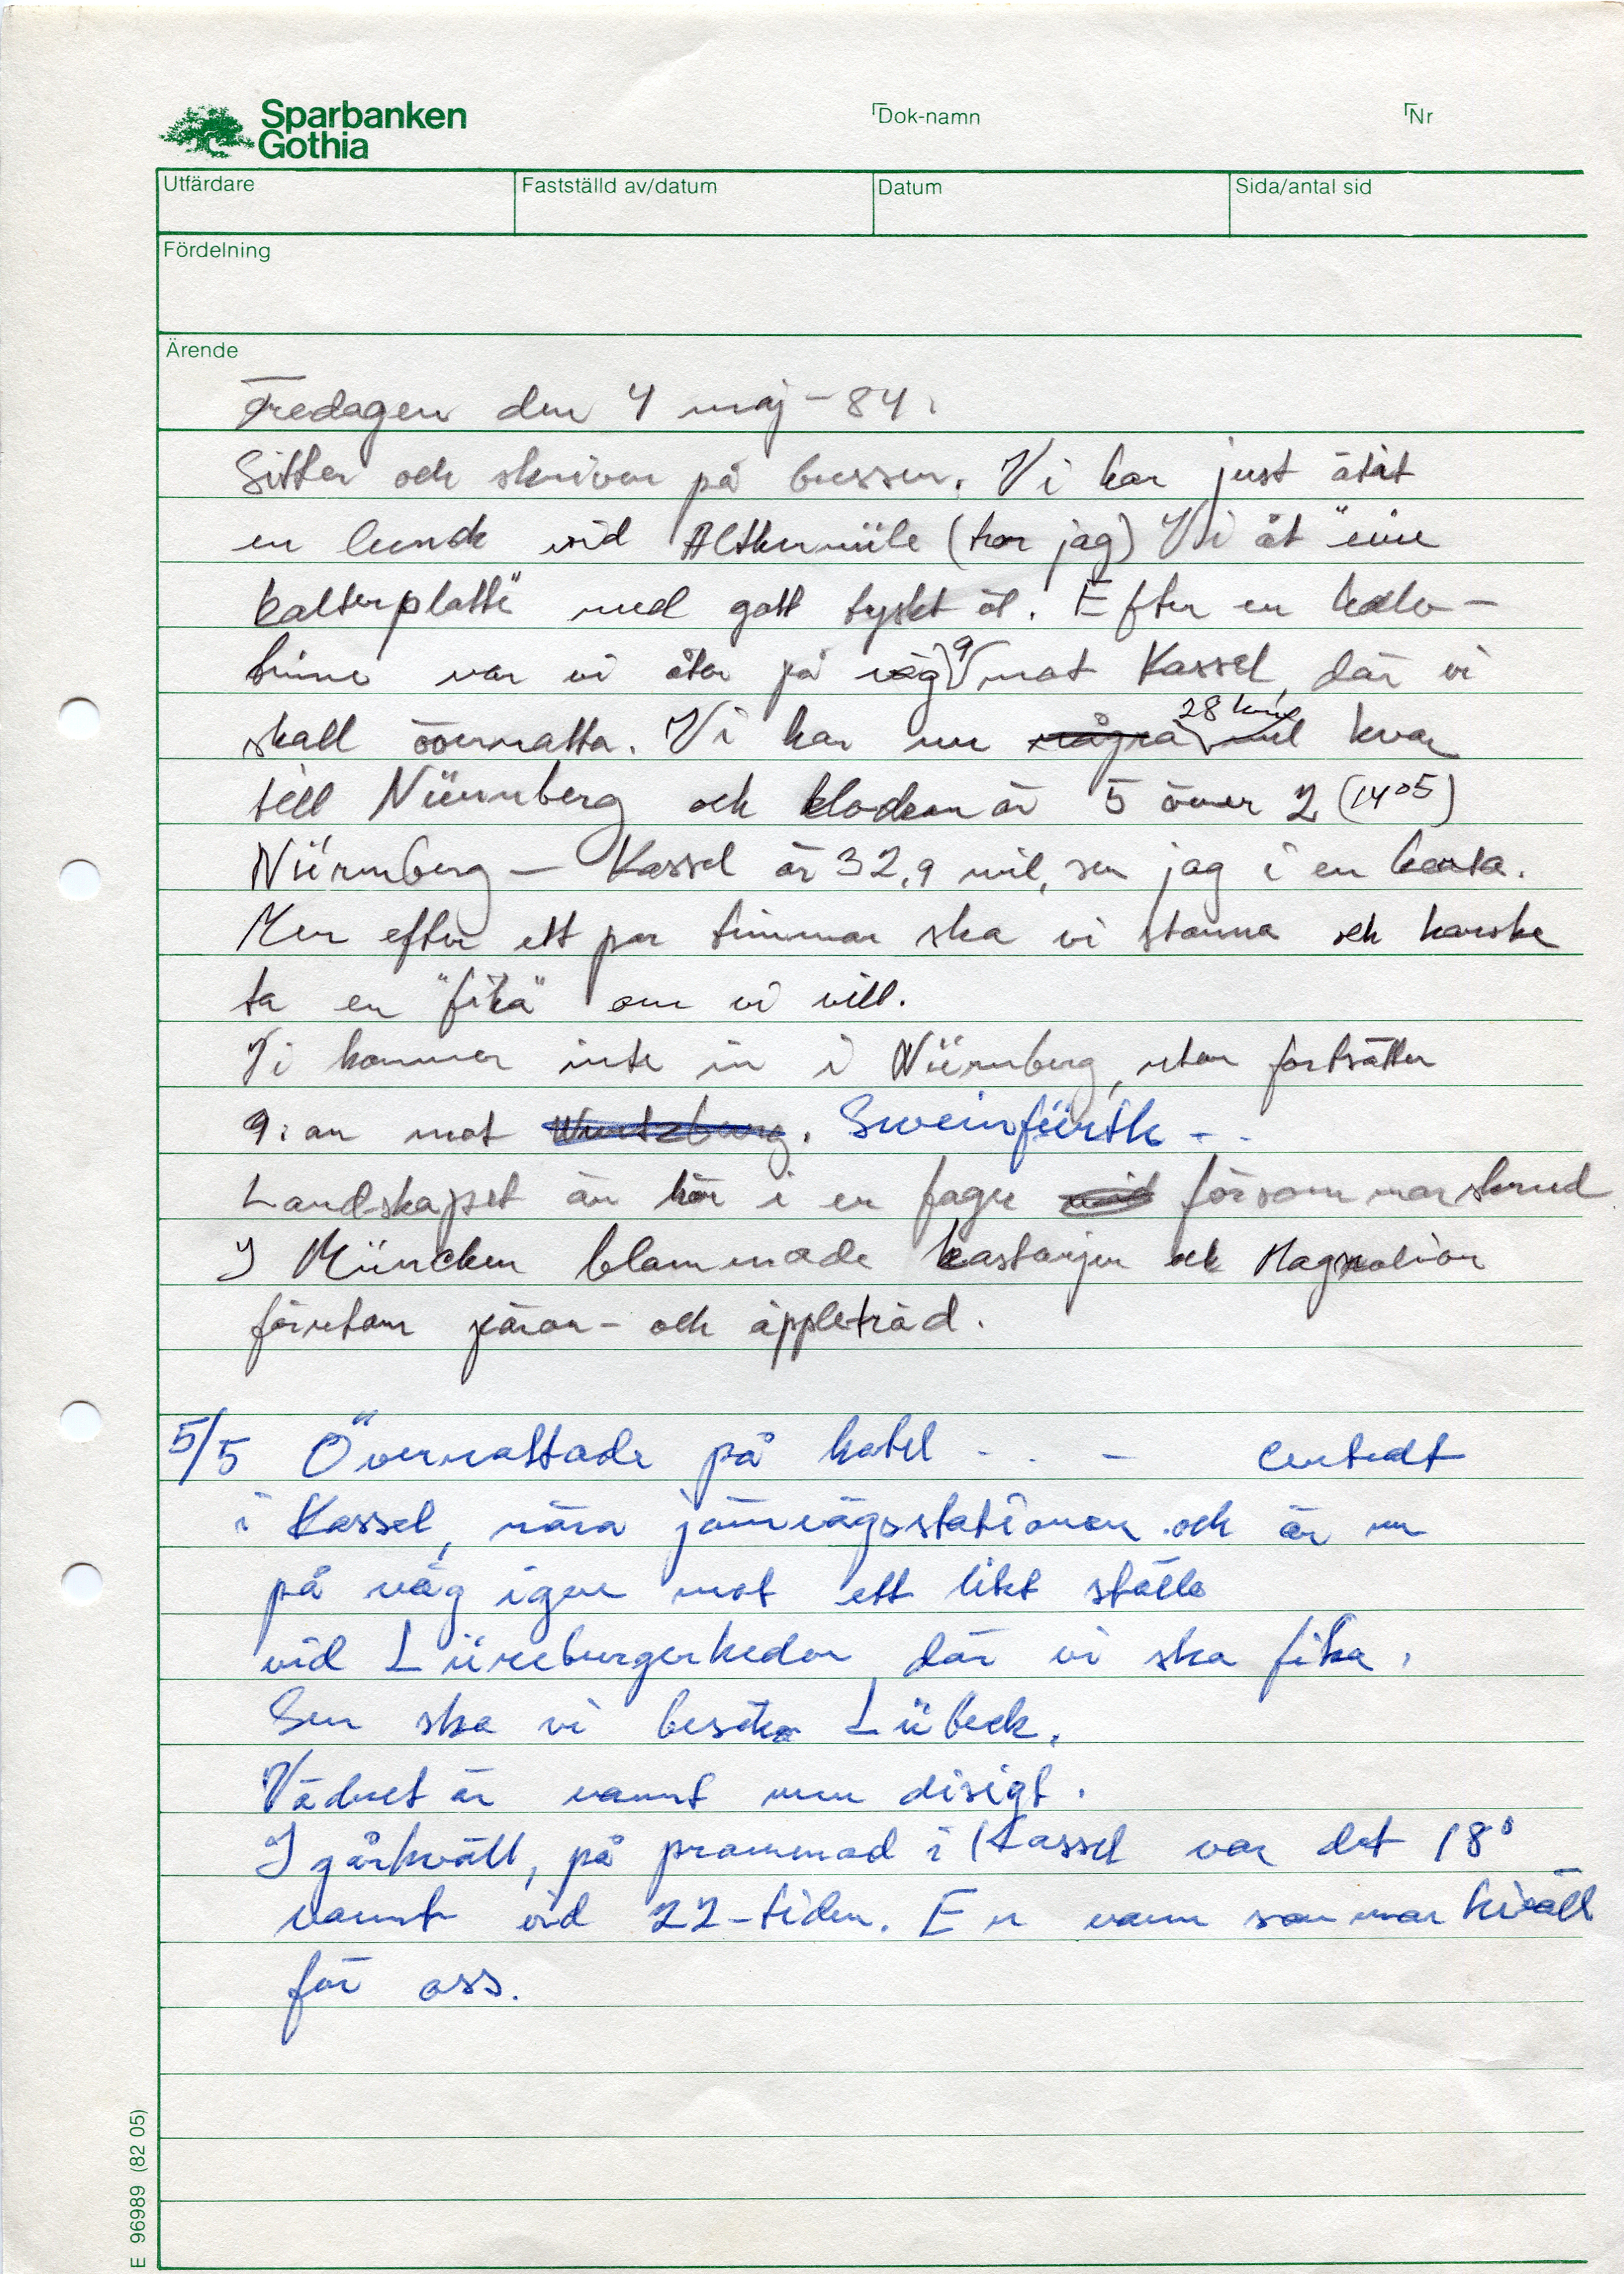 Sparbanken
Gothia
Dok-namn
Nr
Utfärdare
Fastställd av/datum
Datum
Sida/antal sid
Fördelning
Ärende
Fredagen den 4 maj - 84.
Sitter och skriver på bussen. Vi har just ätit
en lunch vid (tror jag) Vi åt "eine
kalterplatte" med gott tyskt öl. Efter en halv-
timme var vi åter på väg 9 mot Kassel, där vi
skall övernatta. Vi har nu några 28 km mil kvar
till Nürnberg och klockan är 5 över 2 (14 05)
Nürnberg - Kassel är 32,9 mil, ser jag i en karta.
Men efter ett par timmar ska vi stanna och kanske
ta en "fika" om vi vill.
Vi kommer inte in i Nürnberg, utan fortsätter
9:an mot Wurtzburg. Sweinfürth - -
Landskapet är här i en fager försommarskrud
I München blommade kastanjer och Magnolior
förutom päron- och äppleträd.
5/5 Övernattade på hotel - . -
i Kassel, nära järnvägsstationen och är nu
på väg igen mot ett likt ställe
vid Lüneburgerheden där vi ska fika.
Sen ska vi besöka Lübeck.
Vädret är varmt men disigt.
I går kväll, på promenad i Kassel var det 18°
varmt vid 22-tiden. En varm sommarkväll
för oss.
E 96989 (82 05)